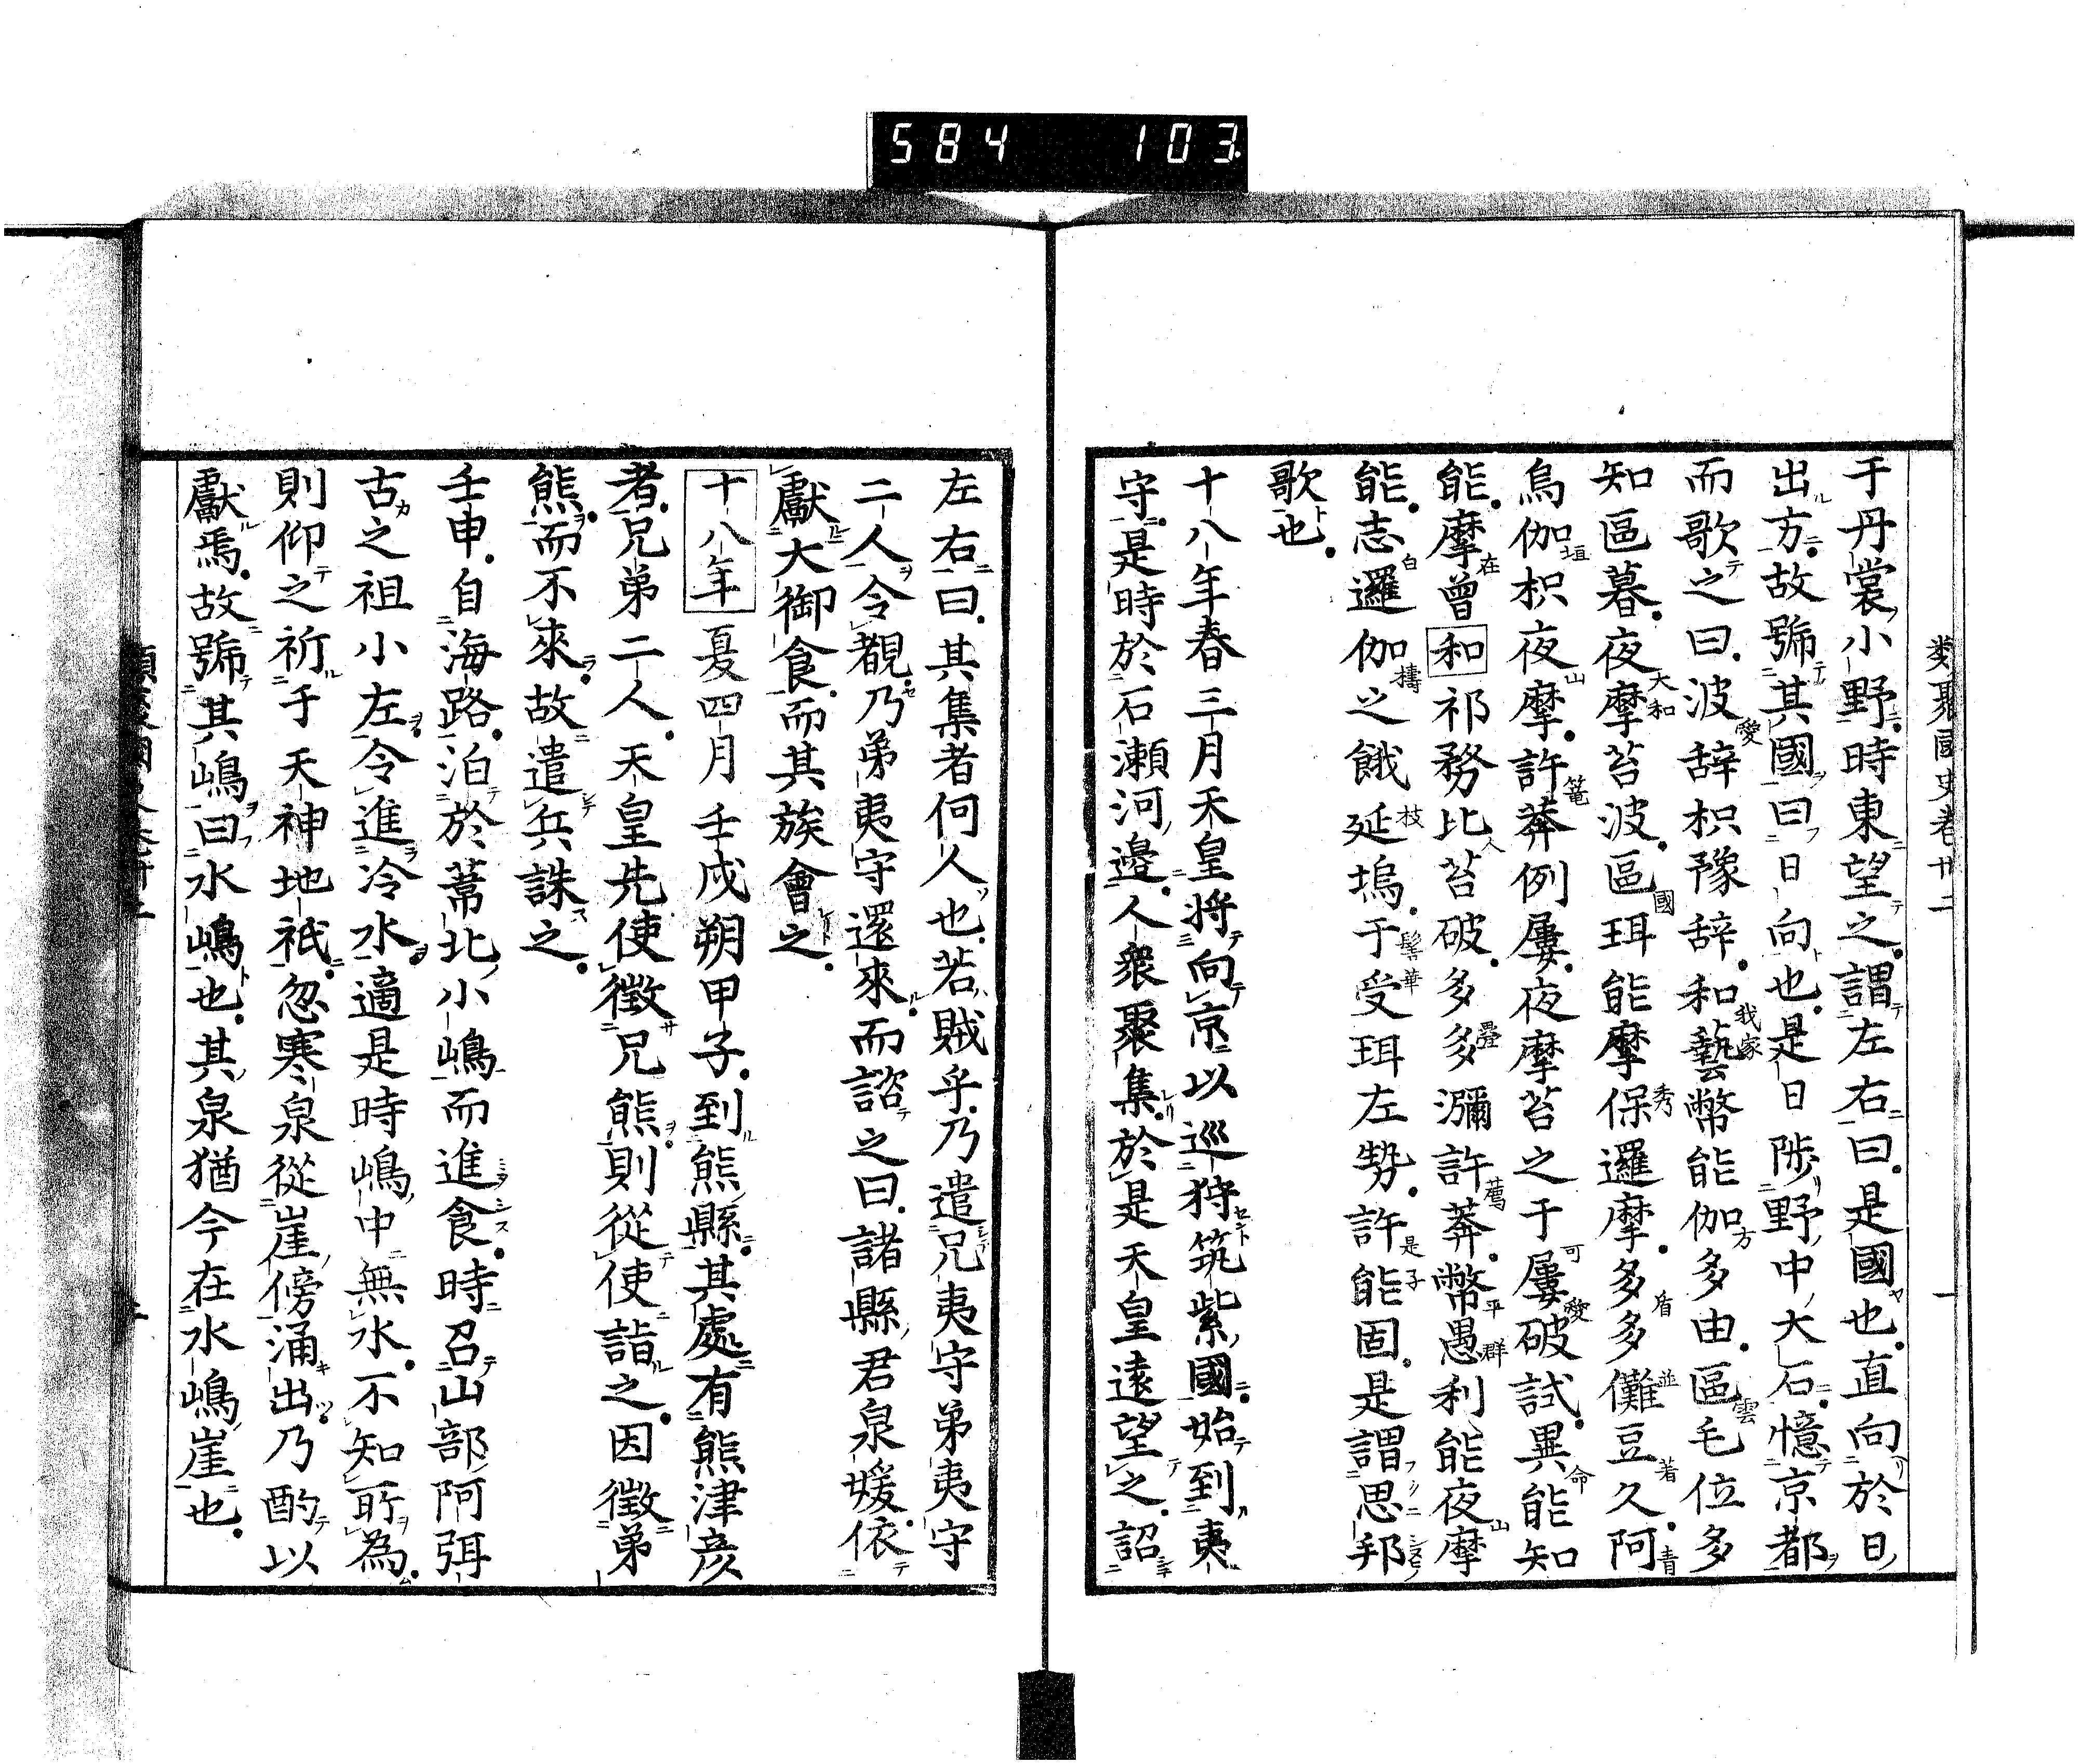 584 103
類聚國史卷卅二
于丹裳小野時東望之謂左右曰是國也直向於日
出方故號其國曰日向也是日陟野中大石憶京都
而歌之曰波辞枳豫辞和藝幣能伽多由區毛位多
知區暮夜摩苔波區珥能摩保邏摩多多儺豆久阿
烏伽枳夜摩許莽例屢夜摩苔之于屢破試異能知
能摩曾和祁務比苔破多多瀰許莽幣愚利能夜摩
能志邏伽之餓延塢于受珥左勢許能固是謂思邦
歌也
十八年春三月天皇將向京以巡狩筑紫國始到夷
守是時於石瀬河邊人衆聚集於是天皇遠望之詔
左右曰其集者何人也若賊乎乃遣兄夷守弟夷守
二人令覩乃弟夷守還來而諮之曰諸縣君泉媛依
獻大御食而其族會之
十八年夏四月壬戌朔甲子到熊縣其處有熊津彦
者兄弟二人天皇先使徵兄熊則從使詣之因徵弟
熊而不來故遣兵誅之
壬申自海路泊於葦北小嶋而進食時召山部阿弭
古之祖小左令進冷水適是時嶋中無水不知所為
則仰之祈于天神地祇忽寒泉從崖傍涌出乃酌以
獻焉故號其嶋曰水嶋也其泉猶今在水嶋崖也